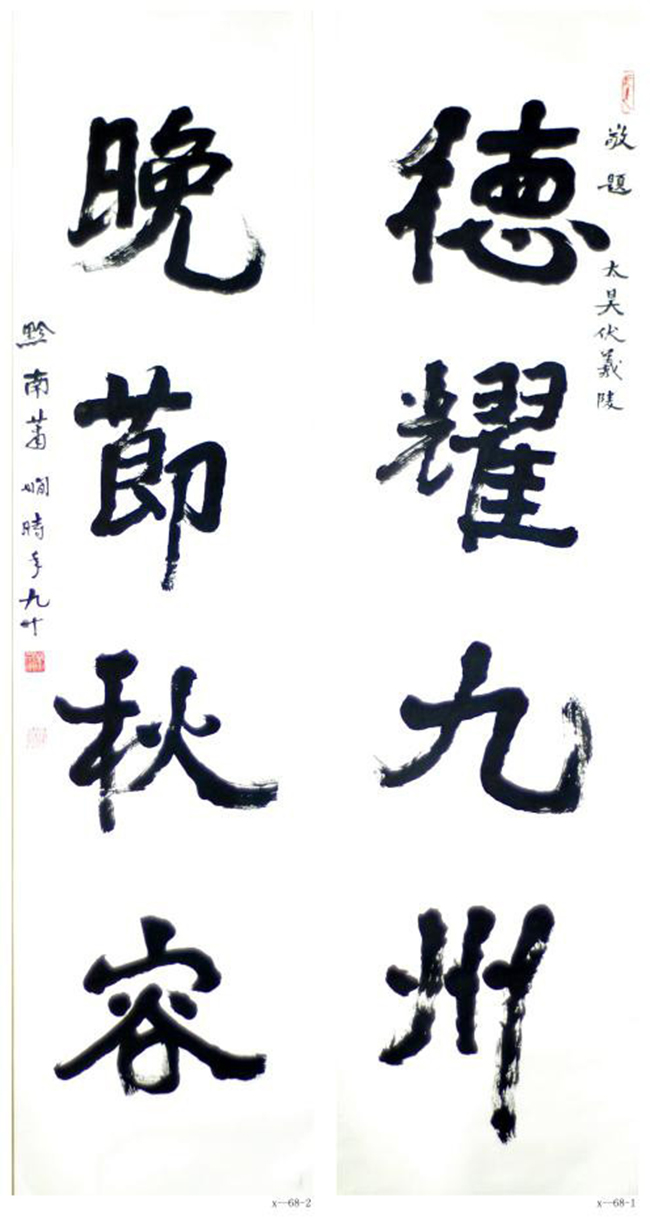 敬題 太昊伏羲陵
德耀九州
晚節秋容
黔南蕭嫻時年九十
x--68-1
x--68-2